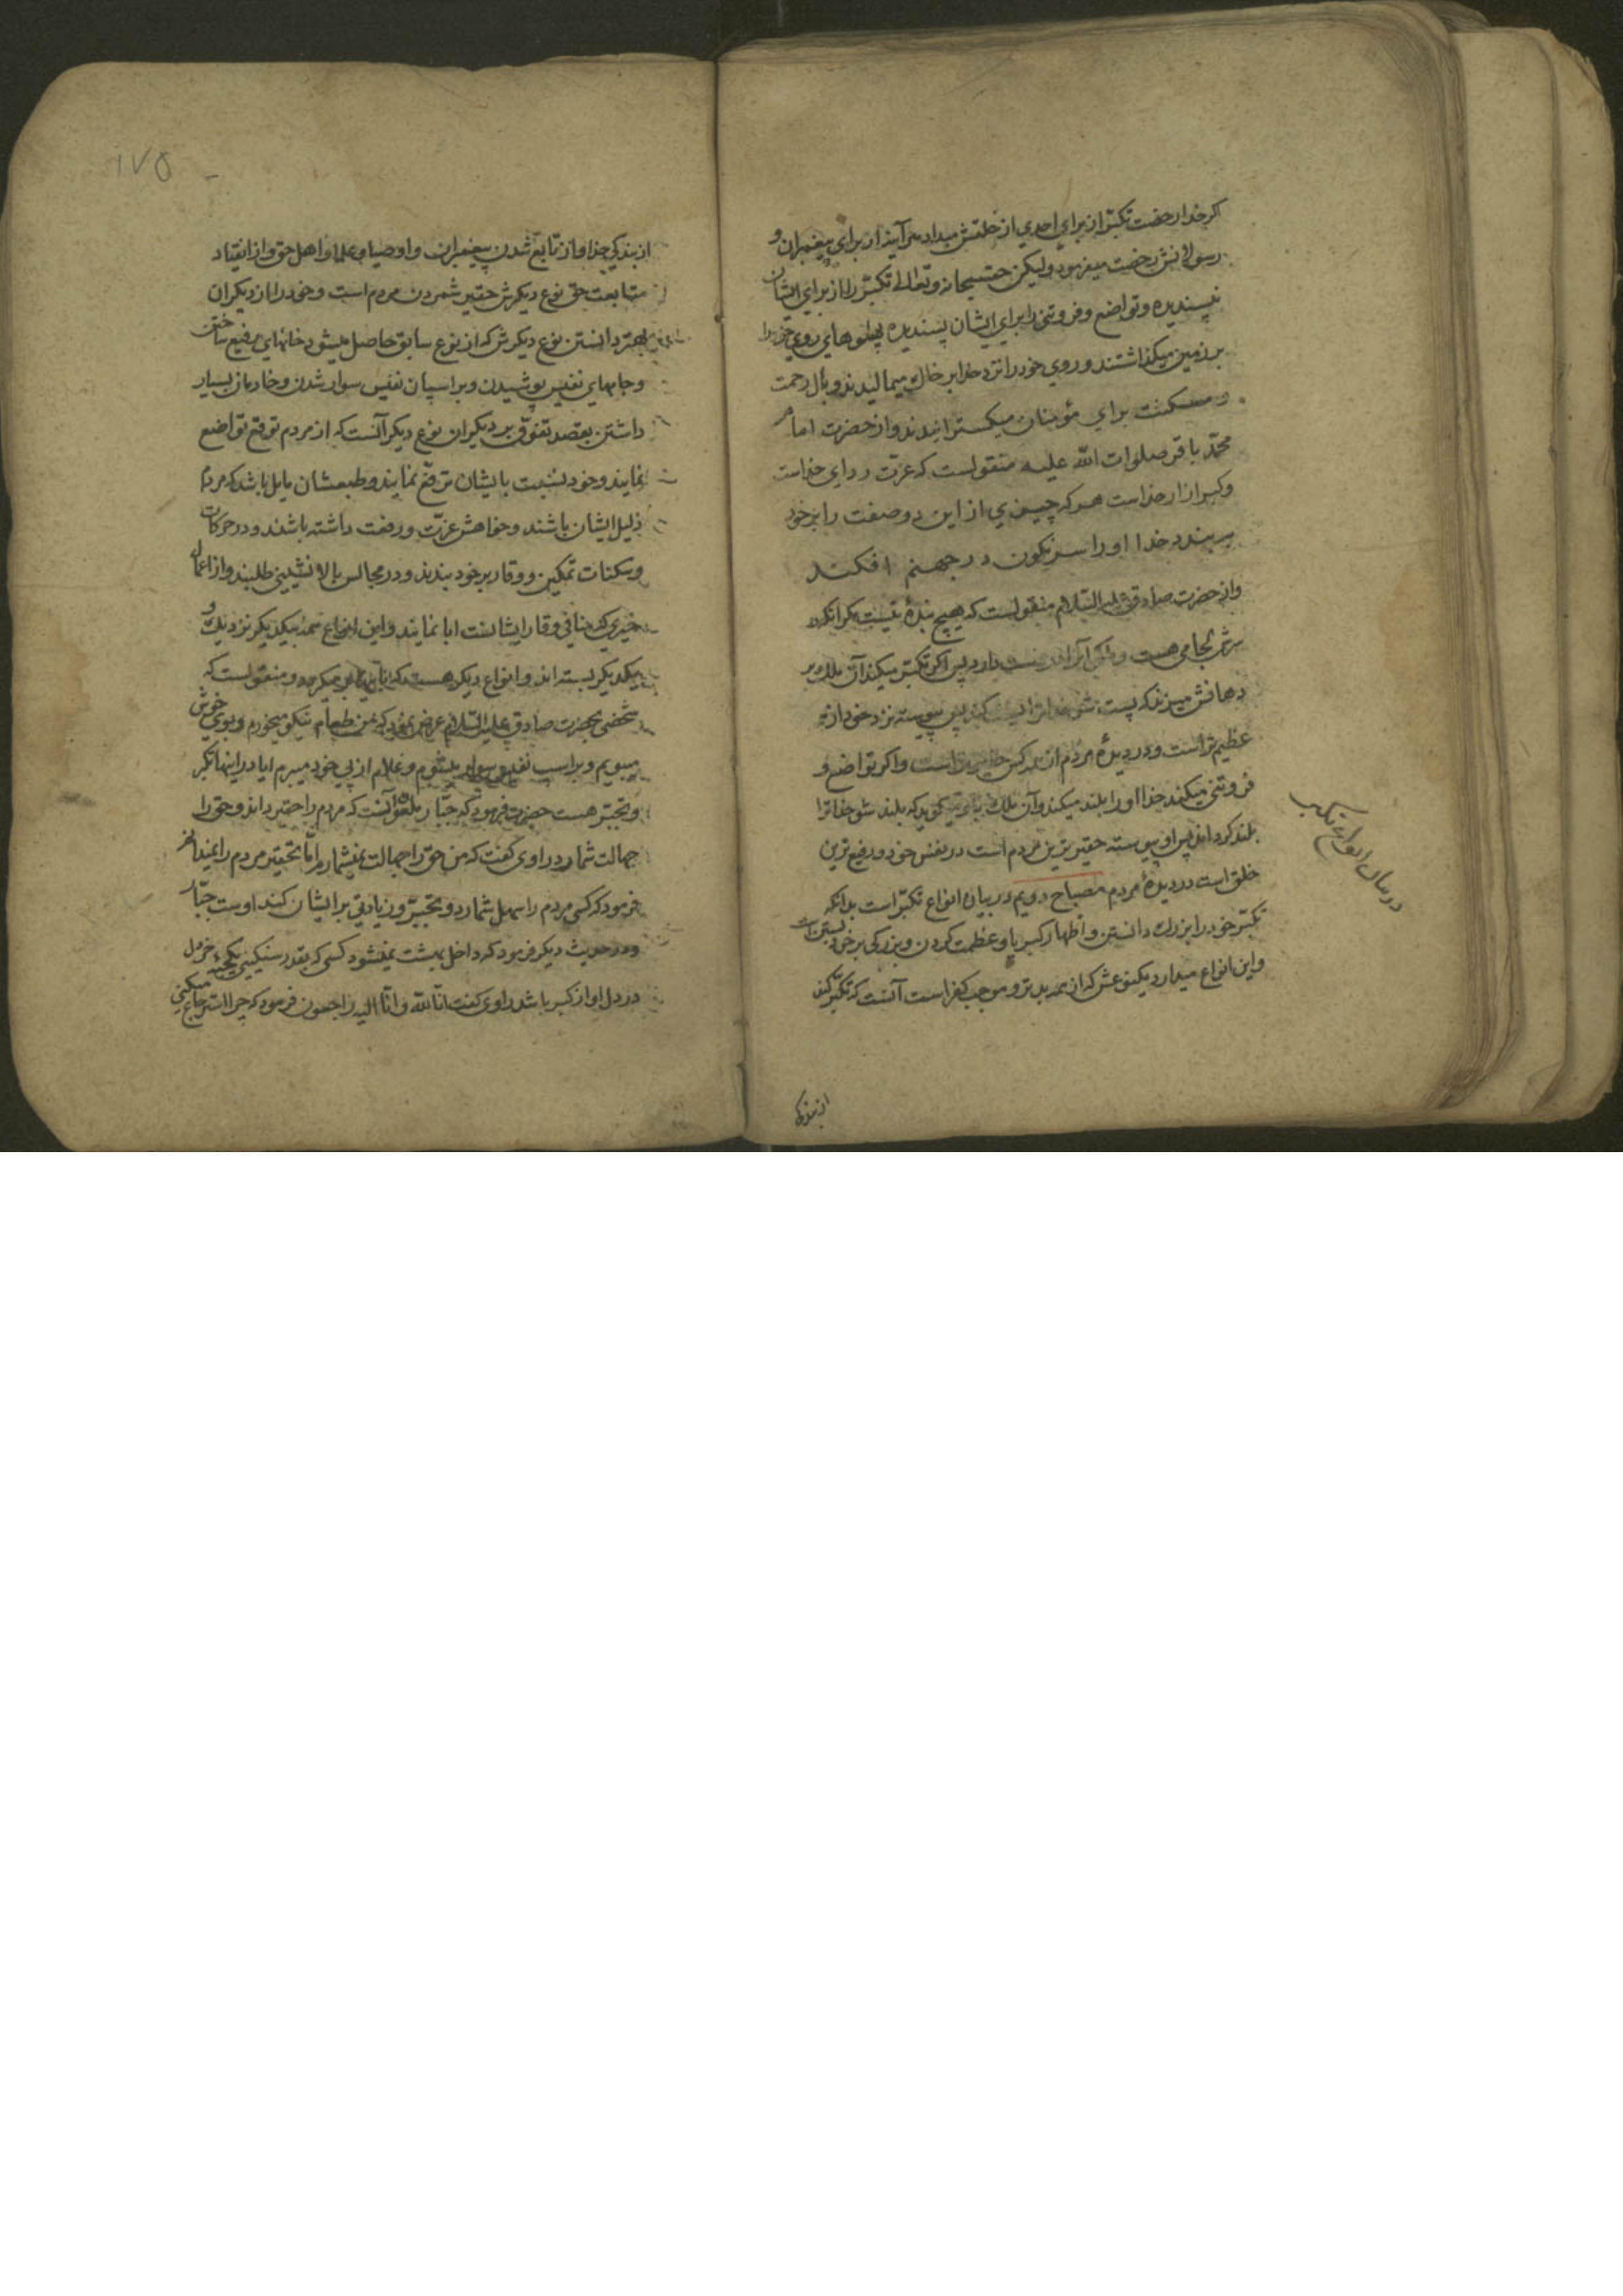 اکر خدا رخصت تکبّر از برای احدی از خلقش میداد هر آینه از برای پیغمبران و
رسولانش رخصت میفرمود ولیکن حقسبحانه وتعالی تکبّر را از برای ایشان
نپسندیده وتواضع وفروتنی را برای ایشان پسندیده پهلوهای روی خود را
بر زمین میکذاشتند وروی خود را نزد خدا بر خاک میمالیدند وبال رحمت
ومسکنت برای مؤمنان میکسترانیدند واز حضرت امام
محمّد باقر صلوات اللّه علیه منقولست که عزّت ردای خداست
وکبر ازار خداست هر که چیزی از این دو صفت را بر خود
ببندد خدا او را سرنکون در جهنم افکند
واز حضرت صادق علیه السّلام منقولست که هیچ بندهٔ نیست مکر انکه در
سرش لجامی هست وملکی آنرا در دست دارد پس اکر تکبّر میکند آن ملک بر
دهانش میزند که پست شو خدا ترا پست کند پس پیوسته نزد خود از همه
عظیم‌تر است ودر دیدهٔ مردم از همه کس حقیرتر است واکر تواضع و
فروتنی میکند خدا او را بلند میکند وآن ملک باو میکوید که بلند شو خدا ترا
بلند کرداند پس او پیوسته حقیرترین مردم است در نفس خود ورفیع‌ترین
خلق است در دیدهٔ مردم مصباح دویم در بیان انواع تکبّر است بدانکه
تکبّر خود را بزرک دانستن واظهار کبریا وعظمت کردن وبزرکی بر خود بستن است
واین انواع میدارد یکنوعش که از همه بدتر وموجب کفر است آنست که تکبّر کند
در بیان انواع تکبر
از بندکی
۱۷۵
از بندکی خدا واز تابع شدن پیغمبران واوصیا وعلما واهل حق واز انقیاد
متابعت حق نوع دیکرش حقیر شمردن مردم است وخود را از دیکران
بهتر دانستن نوع دیکرش که از نوع سابق حاصل میشود خانهای رفیع ساختن
وجامهای نفیس پوشیدن وبر اسپان نفیس سوار شدن وخادمان بسیار
داشتن بقصد تفوّق بر دیکران نوع دیکر آنست که از مردم توقع تواضع
نمایند وخود نسبت بایشان ترفّع نمایند وطبعشان مایل باشد که مردم
ذلیل ایشان باشند وخواهش عزّت ورفعت داشته باشند ودر حرکات
وسکنات تمکین ووقار بر خود بندند ودر مجالس بالا نشینی طلبند واز اعمال
خیری که منافی وقار ایشانست ابا نمایند واین انواع همه بیکدیکر نزدیک و
بیکدیکر بسته‌اند وانواع دیکر هست که باینها بر میکردد ومنقولست که
شخصی بحضرت صادق علیه السّلام عرض نمود که من طعام نیکو میخورم وبوی خوش
میبویم وبر اسب نفیس سوار میشوم وغلام از پی خود میبرم ایا در اینها تکبر
وتجبّر هست حضرت فرمود که جبّار ملعون آنست که مردم را حقیر داند وحق را
جهالت شمارد راوی کفت که من حق را جهالت نمیشمارم امّا تحقیر مردم را نمیدانم
فرمود که کسی مردم را سهل شمارد وتجبّر وزیادتی بر ایشان کند اوست جبّار
ودر حدیث دیکر فرمود که داخل بهشت نمیشود کسی که بقدر سنکینی یکحبّه خردل
در دل او از کبر باشد راوی کفت انّا للّه وانّا الیه راجعون فرمود که چرا استرجاع میکنی